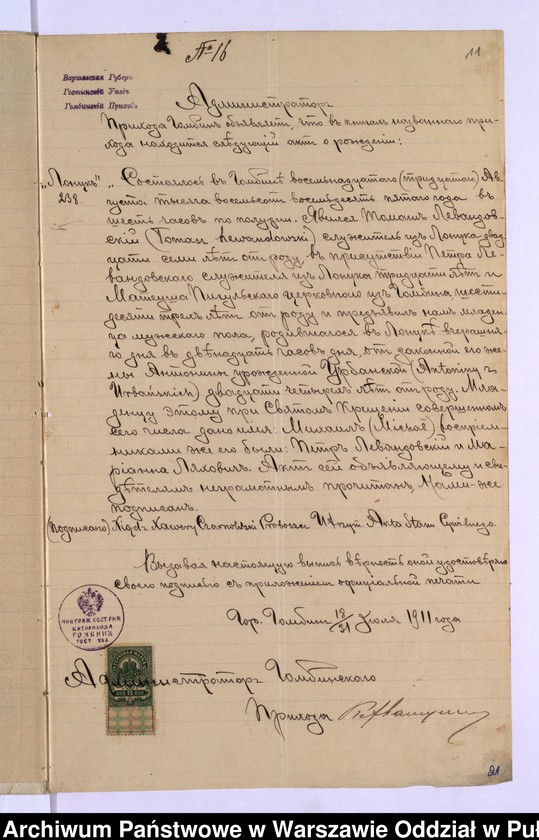 № 16
11
Варшавская Губерн.
Гостынскій Уѣздъ
Гомбинскій Приходъ
Администраторъ
Прихода Гомбинъ объявляетъ, что въ книгахъ названнаго при-
хода находится слѣдующій актъ о рожденіи:
„Лонукъ"
238.
„Состоялось въ Гомбинѣ восемьнадцатаго (тридцатаго) Ав-
густа тысяча восемьсотъ восемьдесятъ пятаго года въ
шесть часовъ по полудни. Явился Томашъ Левандов-
скій (Tomasz Lewandowski) служитель изъ Лонука двад-
цати семи лѣтъ отъ роду, въ присутствіи Петра Ле-
вандовскаго служителя изъ Лонука тридцати лѣтъ и
Матеуша Пигульскаго церковнаго изъ Гомбина, шести-
десяти трехъ лѣтъ отъ роду и предъявилъ намъ младен-
ца мужескаго пола, родившагося въ Лонукѣ вчерашня-
го дня въ двѣнадцать часовъ дня, отъ законной его же-
ны Антонины урожденной Урбанской (Antoniny z
Urbańskich) двадцати четырехъ лѣтъ отъ роду. Мла-
денцу этому при Святомъ Крещеніи совершенномъ
сего числа дано имя: Михаилъ (Michał) воспріем-
никами же его были: Петръ Левандовскій и Ма-
ріанна Ляховичъ. Актъ сей объявляющему и сви-
дѣтелямъ неграмотнымъ прочитанъ, Нами же
подписанъ.
(Подписано) Ksiądz Xawery Czarnowski Proboszcz Utrzym. Akta Stanu Cywilnego.
Выдавая настоящую выпись вѣрность оной удостовѣряю
своею подписью съ приложеніемъ оффиціальной печати
Гор. Гомбинъ 18/31 Іюля 1911 года
ЧИН. ГРАЖ. СОСТ. РИМ.
КАТ. ПРИХОДА
ГОМБИНЪ
ГОСТ. УѢЗ.
Администраторъ Гомбинскаго
Прихода
21
Archiwum Państwowe w Warszawie Oddział w Puł